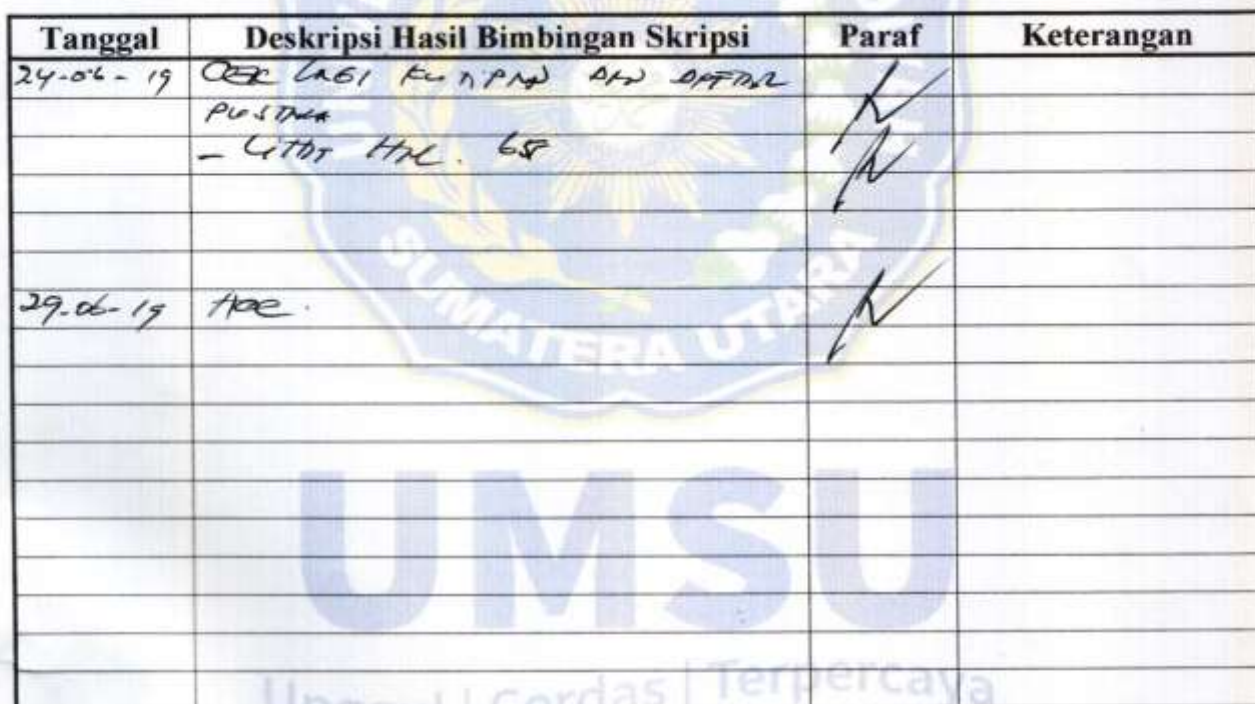 Tanggal Deskripsi Hasil Bimbingan Skripsi Paraf Keterangan
24-06-19 CEK LAGI KUTIPAN DAN DAFTAR
PUSTAKA
- LIHAT HAL. 65
29-06-19 Acc.
SUMATERA UTARA
UMSU
Unggul | Cerdas | Terpercaya